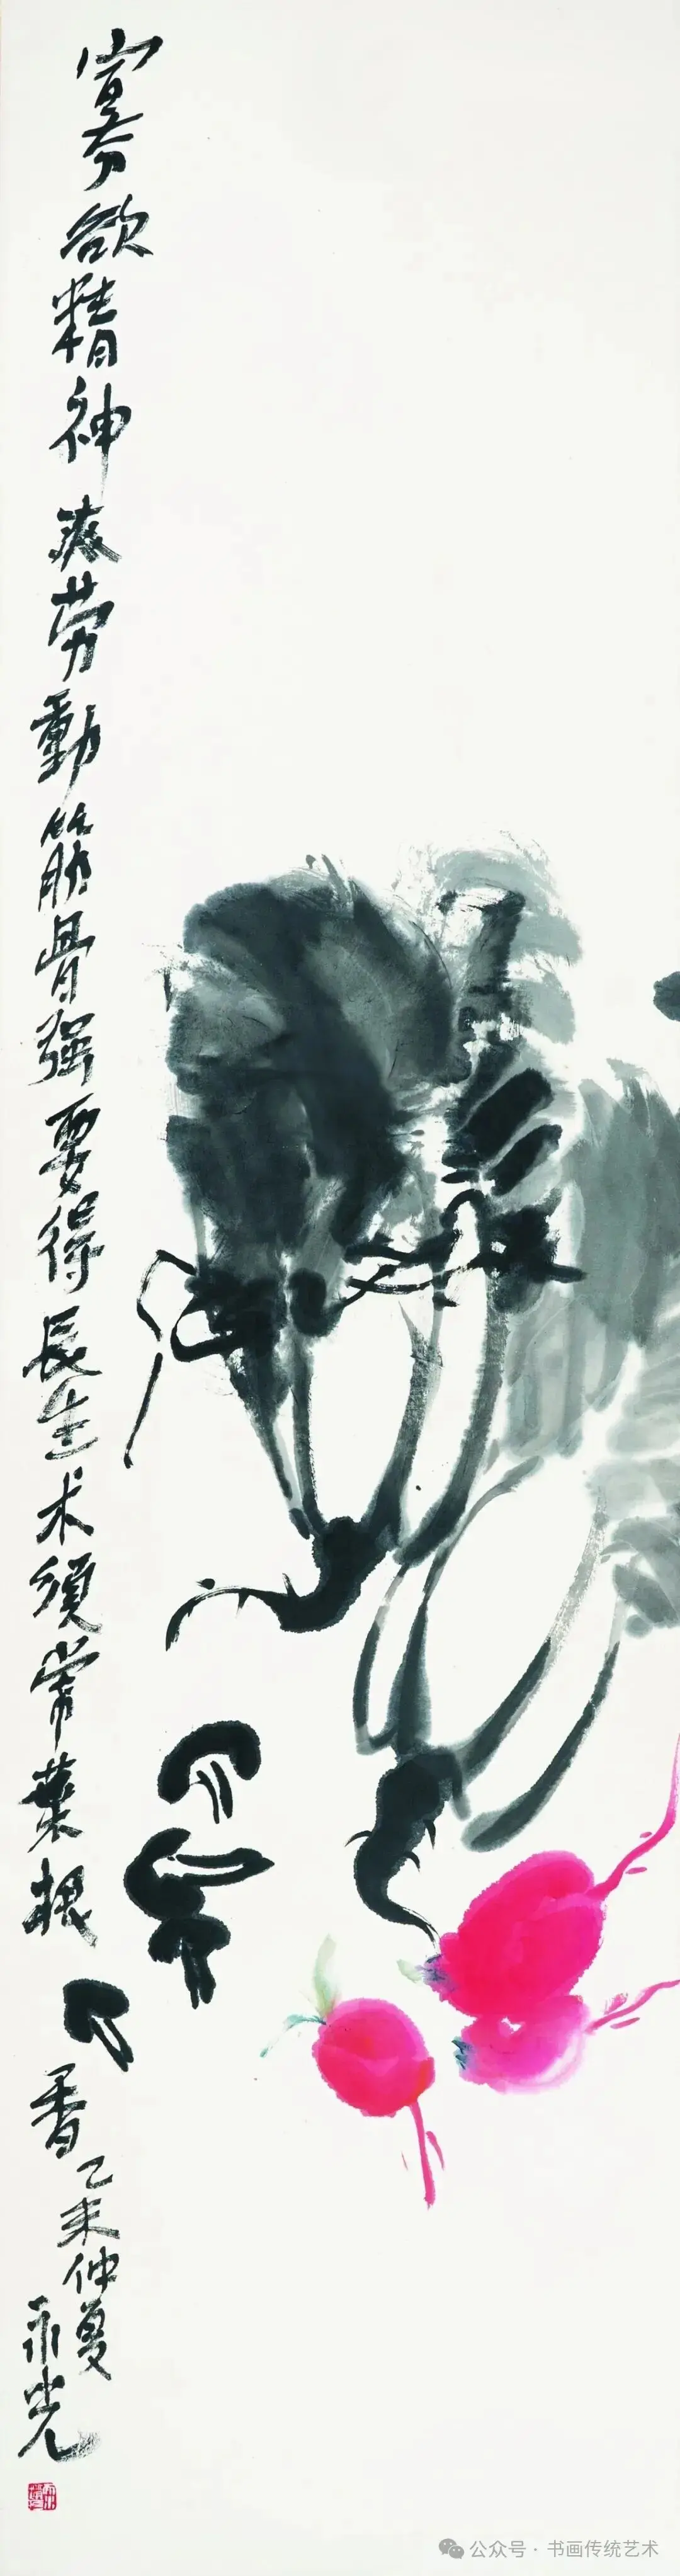 寡欲精神爽劳動筋骨强要得長生术須常菜根
香
乙未仲夏
永光
公众号·书画传统艺术